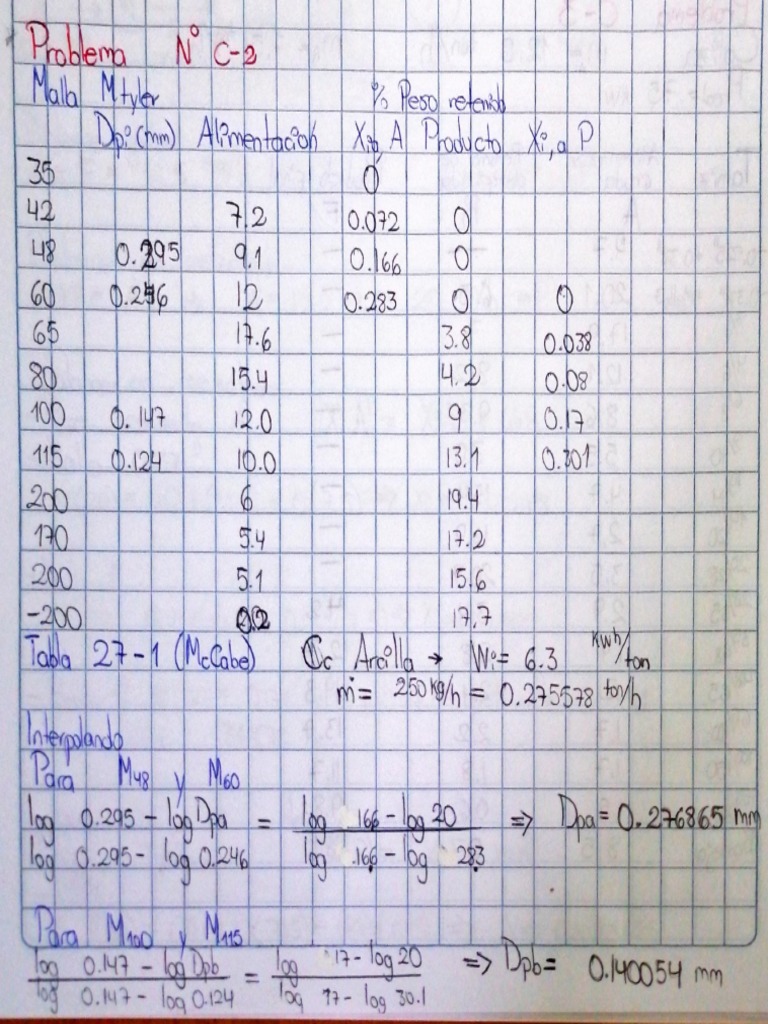 Problema N° C-2
Malla Mtyler % Peso retenido
Dpi (mm) Alimentacion Xi, A Producto Xi, a P
35 0
42 7.2 0.072 0
48 0.295 9.1 0.166 0
60 0.246 12 0.283 0 0
65 17.6 3.8 0.038
80 15.4 4.2 0.08
100 0.147 12.0 9 0.17
115 0.124 10.0 13.1 0.301
200 6 19.4
170 5.4 17.2
200 5.1 15.6
-200 0.2 17.7
Tabla 27-1 (McCabe) Cc Arcilla → Wi= 6.3 Kwh/ton
ṁ= 250 kg/h = 0.275578 ton/h
Interpolando
Para M48 y M60
log 0.295 - log Dpa = log .166 - log 20 ⇒ Dpa= 0.276865 mm
log 0.295 - log 0.246 log .166 - log 283
Para M100 y M115
log 0.147 - log Dpb = log 17 - log 20 ⇒ Dpb= 0.140054 mm
log 0.147 - log 0.124 log 17 - log 30.1